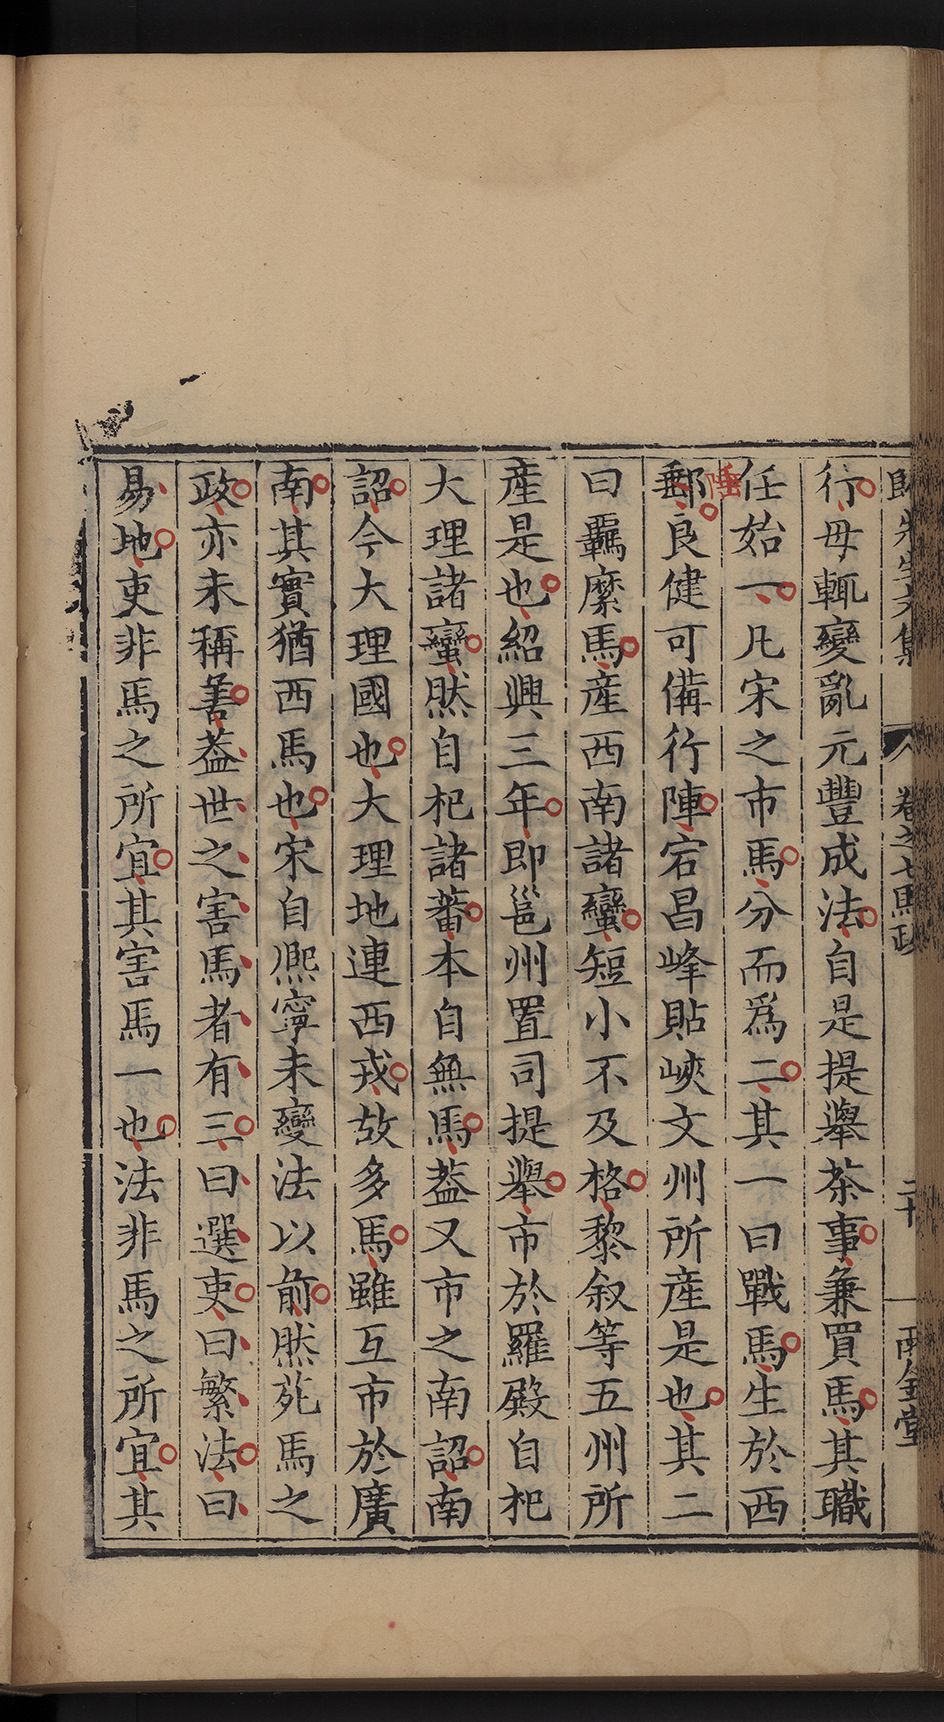 卷之七馬政 二十 兩金堂
行毋輒變亂元豐成法自是提舉茶事兼買馬其職
任始一凡宋之市馬分而爲二其一曰戰馬生於西
郵良健可備行陣宕昌峰貼峽文州所產是也其二
陲
曰羈縻馬產西南諸蠻短小不及格黎叙等五州所
產是也紹興三年即邕州置司提舉市於羅殿自杞
大理諸蠻然自杞諸蕃本自無馬葢又市之南詔南
詔今大理國也大理地連西戎故多馬雖互市於廣
南其實猶西馬也宋自熙寧未變法以前然死馬之
政亦未稱善葢世之害馬者有三曰選吏曰繁法曰
易地吏非馬之所宜其害馬一也法非馬之所宜其